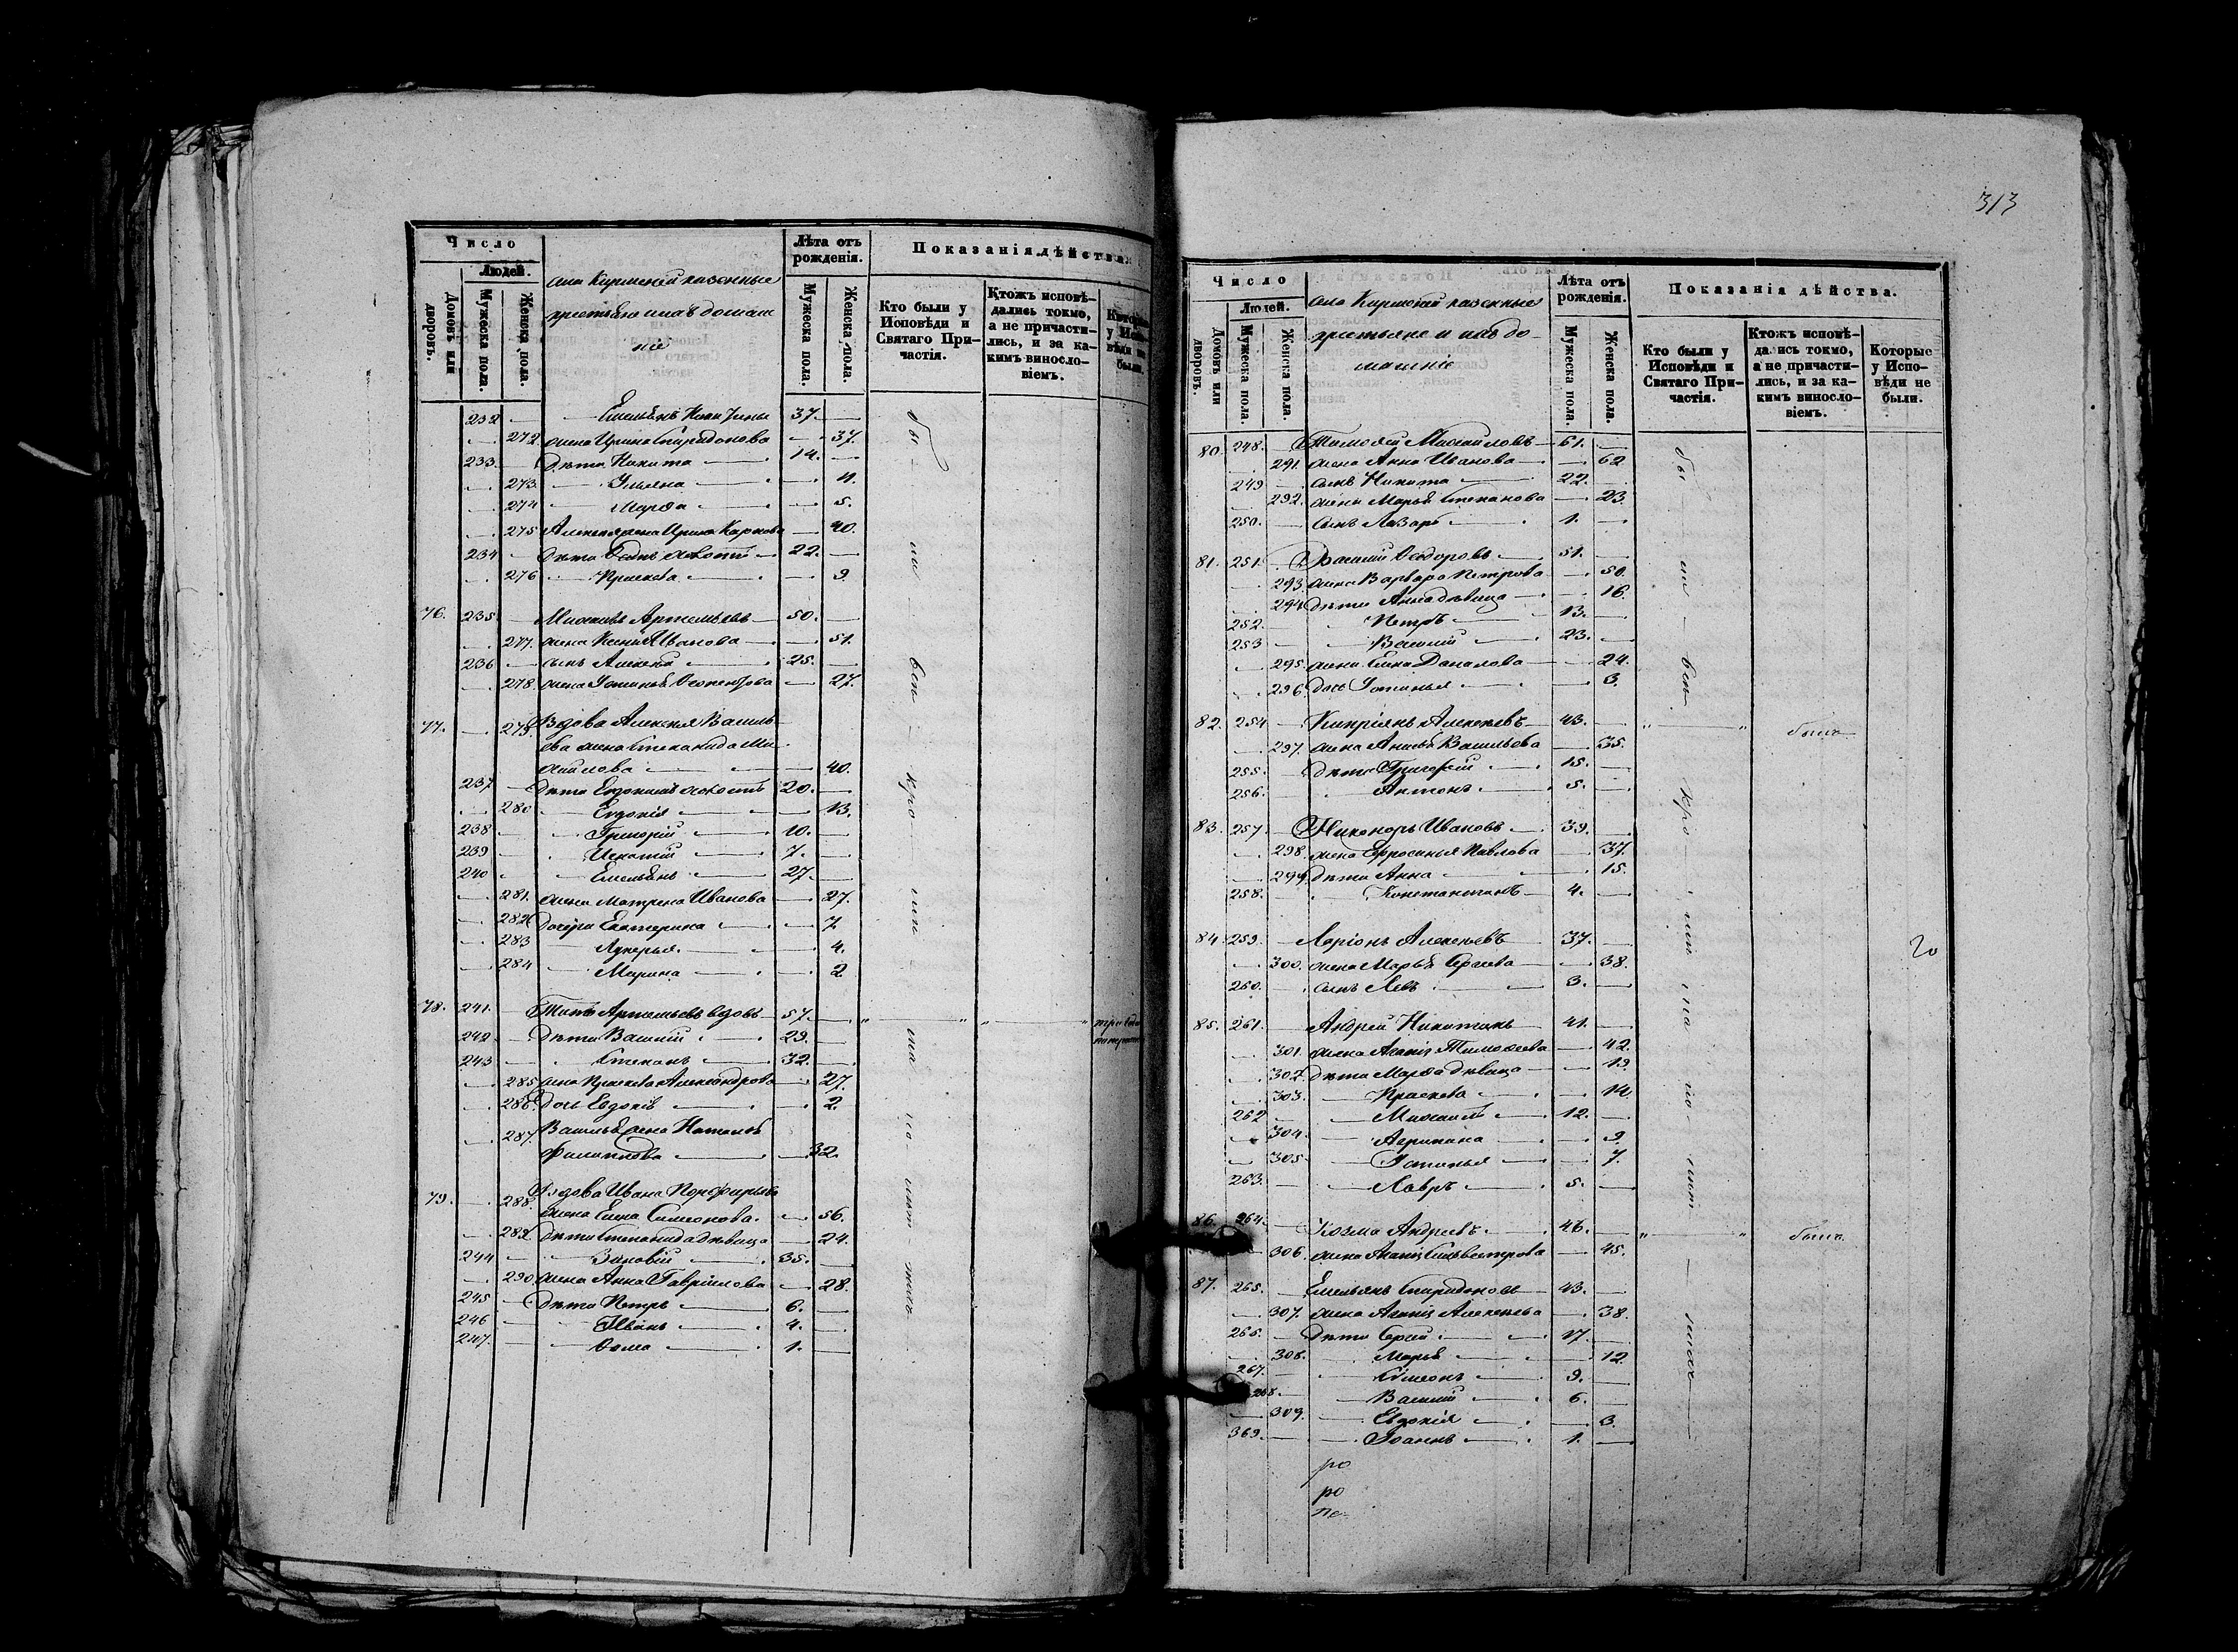 Число
Людей.
Домовъ или дворовъ.
Мужеска пола.
Женска пола.
села казенные
Лѣта отъ рожденія.
Мужеска пола.
Женска пола.
Показанія дѣйства.
Кто были у Исповѣди и Святаго Причастія.
Ктожъ исповѣдались токмо, а не причастились, и за какимъ винословіемъ.
232 — Емельянъ 37. —
— 272. жена Ирина Спиридонова — 37.
233. — дѣти Никита — 14. —
— 273 — Ульяна — — 11.
— 274 — Марѳа — — 5.
— 275 жена Ирина Карпова — 40.
234 — дѣти холостъ — 22. —
— 276 — Праскева — — 9.
76. 235. — Михаилъ Артемьевъ — 50. —
— 277. жена Ксенія Иванова — — 51.
236 — сынъ Алексѣй — 25. —
— 278. жена Устинья — 27.
77. — 279. Вдова Алексѣя Василь-
ева жена Степанида Ми-
хайлова — — 40.
237 — дѣти Евдокимъ холостъ 20. —
— 280 — Евдокія — — 13.
238 — Григорій — 10. —
239 — Игнатій — 7. —
240 — Емельянъ — 27. —
— 281. жена Матрена Иванова — 27.
— 282 дочери Екатерина — — 7
— 283 — Лукерья — — 4.
— 284 — Марина — — 2
78. 241. — Титъ Артемьевъ вдовъ — 57. —
242 — дѣти Василій — 29. —
243 — Степанъ — 32. —
— 285 жена Праскева Александрова — 27.
— 286. дочь Евдокія — — 2.
— 287. Василья жена Наталья
Филиппова — — 32.
79. — 288. Вдова Ивана Порфирьева
жена Елена Симеонова. — 56.
— 289. дѣти Степанида дѣвица — 24.
244 — Зиновій — 35. —
— 290 жена Анна Гавриилова — 28.
245 — дѣти Петръ — 6. —
246 — Иванъ — 4. —
247. — Ѳома — 1. —
бы - ли - всѣ - кро - ми - на - по - лист - никъ
313
Число
Людей.
Домовъ или дворовъ.
Мужеска пола.
Женска пола.
села казенные
крестьяне и ихъ до-
машніе
Лѣта отъ рожденія.
Мужеска пола.
Женска пола.
Показанія дѣйства.
Кто были у Исповѣди и Святаго Причастія.
Ктожъ исповѣдались токмо, а не причастились, и за какимъ винословіемъ.
Которые у Исповѣди не были.
80. 248. — Тимоѳей Михайловъ — 61. —
— 291. жена Анна Иванова — — 62
249 — сынъ Никита — 22. —
— 292. жена Марья Степанова — 23.
250. — сынъ Лазарь — 1. —
81. 251. — Василій Ѳеодоровъ — 51. —
— 293. жена Варвара Петрова — 50.
— 294 дѣти Анна дѣвица — — 16.
252. — Петръ — 13. —
253 — Василій — 23. —
— 295. жена Елена Данилова — 24.
— 296. дочь Устинья — — 3.
82. 254 — Кипріянъ Алексѣевъ — 43. — были
— 297. жена Анисья Васильева — 35.
255. — дѣти Григорій — 15. —
256. — Антонъ — 5. —
83. 257. — Никоноръ Ивановъ — 39. —
— 298. жена Ефросинья Павлова — 37.
— 299. дѣти Анна — — 15.
258. — Константинъ — 4. —
84. 259. — Ларіонъ Алексѣевъ — 37. —
— 300. жена Марья Сергеева — 38.
260. — сынъ Левъ — 3. —
20
85. 261. — Андрей Никитинъ — 41. —
— 301. жена Агапія Тимоѳеева — 42.
— 302. дѣти Марѳа дѣвица — — 19.
— 303. — Праскева — — 14.
262 — Михаилъ — 12. —
— 304. — Агрипина — — 9.
— 305. — Устинья — — 7.
263. — Лавръ — 5. —
86. 264. — Козма Андреевъ — 46. — были
— 306. жена Агапія Сильвестрова — 45.
87. 265. — Емельянъ Спиридоновъ — 43. —
— 307. жена Агапія Алексѣева — 38.
265. — дѣти Сергій — 17. —
— 308. — Марья — — 12
267. — Симеонъ — 9. —
268. — Василій — 6. —
— 309. — Евдокія — — 3.
369. — Іоаннъ — 1. —
ро
ро
по